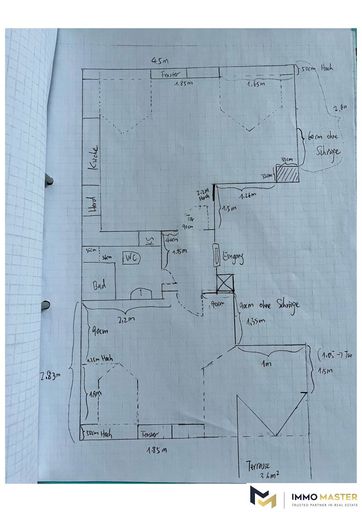 4.5 m
Fenster
1.85m
1.65m
50cm Hoch
2.4m
60cm ohne
Schräge
Küche
Herd
2.2m
Hoch
1.26m
1.5m
Tür
90cm
KS
1.15m
WC
Eingang
Bad
2.2m
90cm
90cm ohne Schräge
1.35m
90cm
2.83m
1.5m
1m
1.5m
50cm Hoch
Fenster
1.85m
Terrasse
3.6m²
IMMO MASTER
TRUSTED PARTNER IN REAL ESTATE